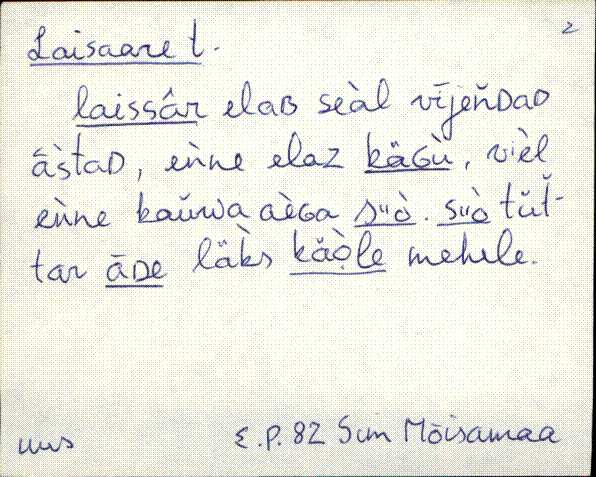 2
Laisaare t.
laissâr elaʙ seàl vījeǹᴅaᴅ
ā̀staᴅ, eǹne elaz kä̆ɢù, vièl
eǹne kaŭwa aèɢa sùò. sùò tŭt-
tar āᴅe läks kä̆ò̭le mehele.
uus
E.P. 82 Sim Mõisamaa